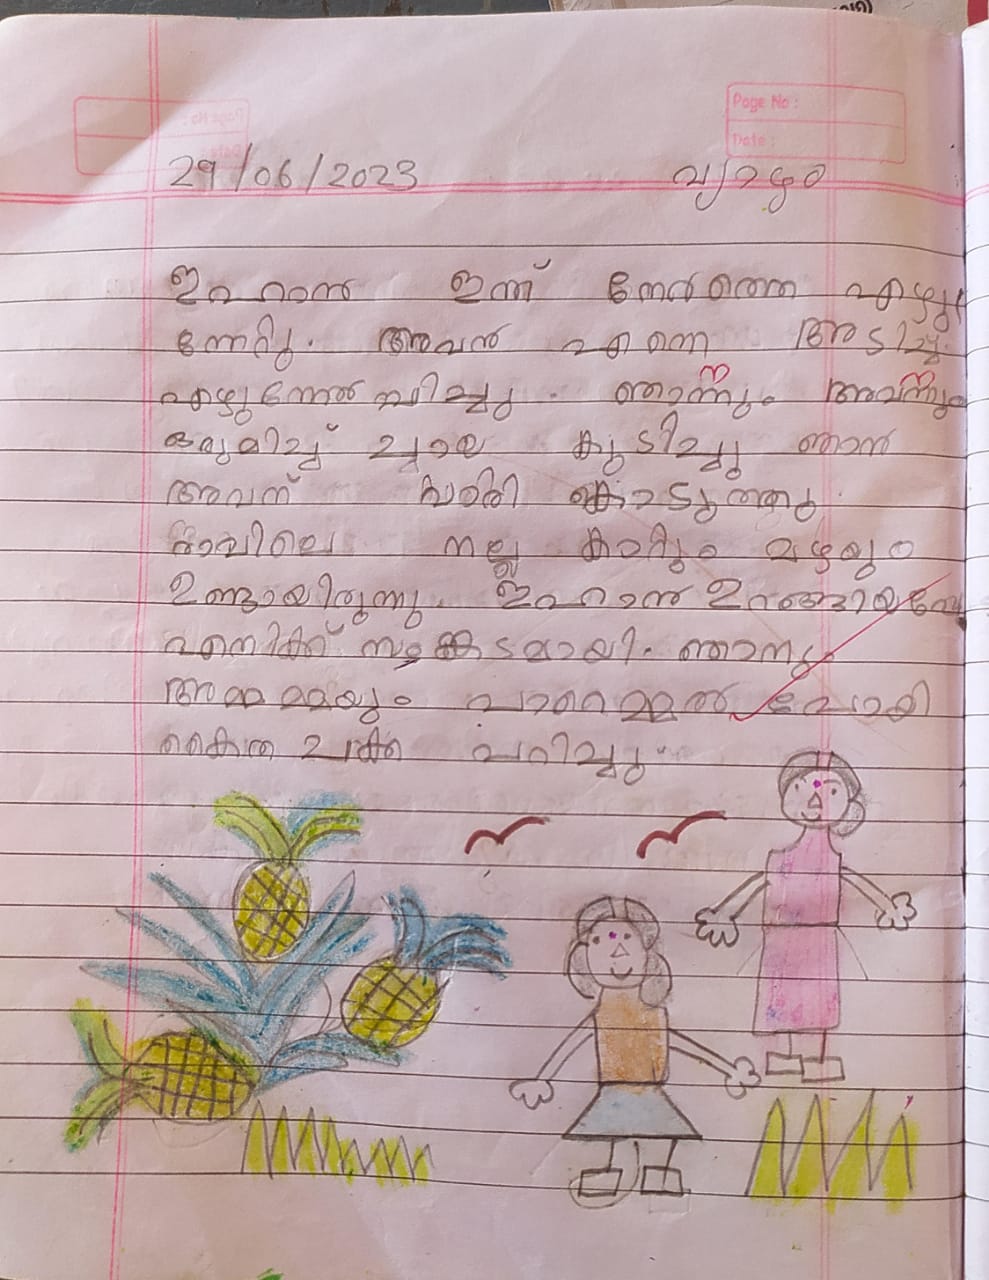 Page No :
Date :
29/06/2023 വ്യാഴം
ഇഹാൻ ഇന്ന് നേരത്തെ എഴു
ന്നേറ്റു. അവൻ എന്നെ അടിച്ചു
എഴുന്നേൽപ്പിച്ചു. ഞാനും അവനും
ഒരുമിച്ച് ചായ കുടിച്ചു ഞാൻ
അവന് വാരി കൊടുത്തു.
രാവിലെ നല്ല കാറ്റും മഴയും
ഉണ്ടായിരുന്നു. ഇഹാൻ ഉറങ്ങിയപ്പോ
എനിക്ക് സങ്കടമായി. ഞാനും
അമ്മമ്മയും പാറമ്മൽ പോയി
കൈതചക്ക പറിച്ചു.